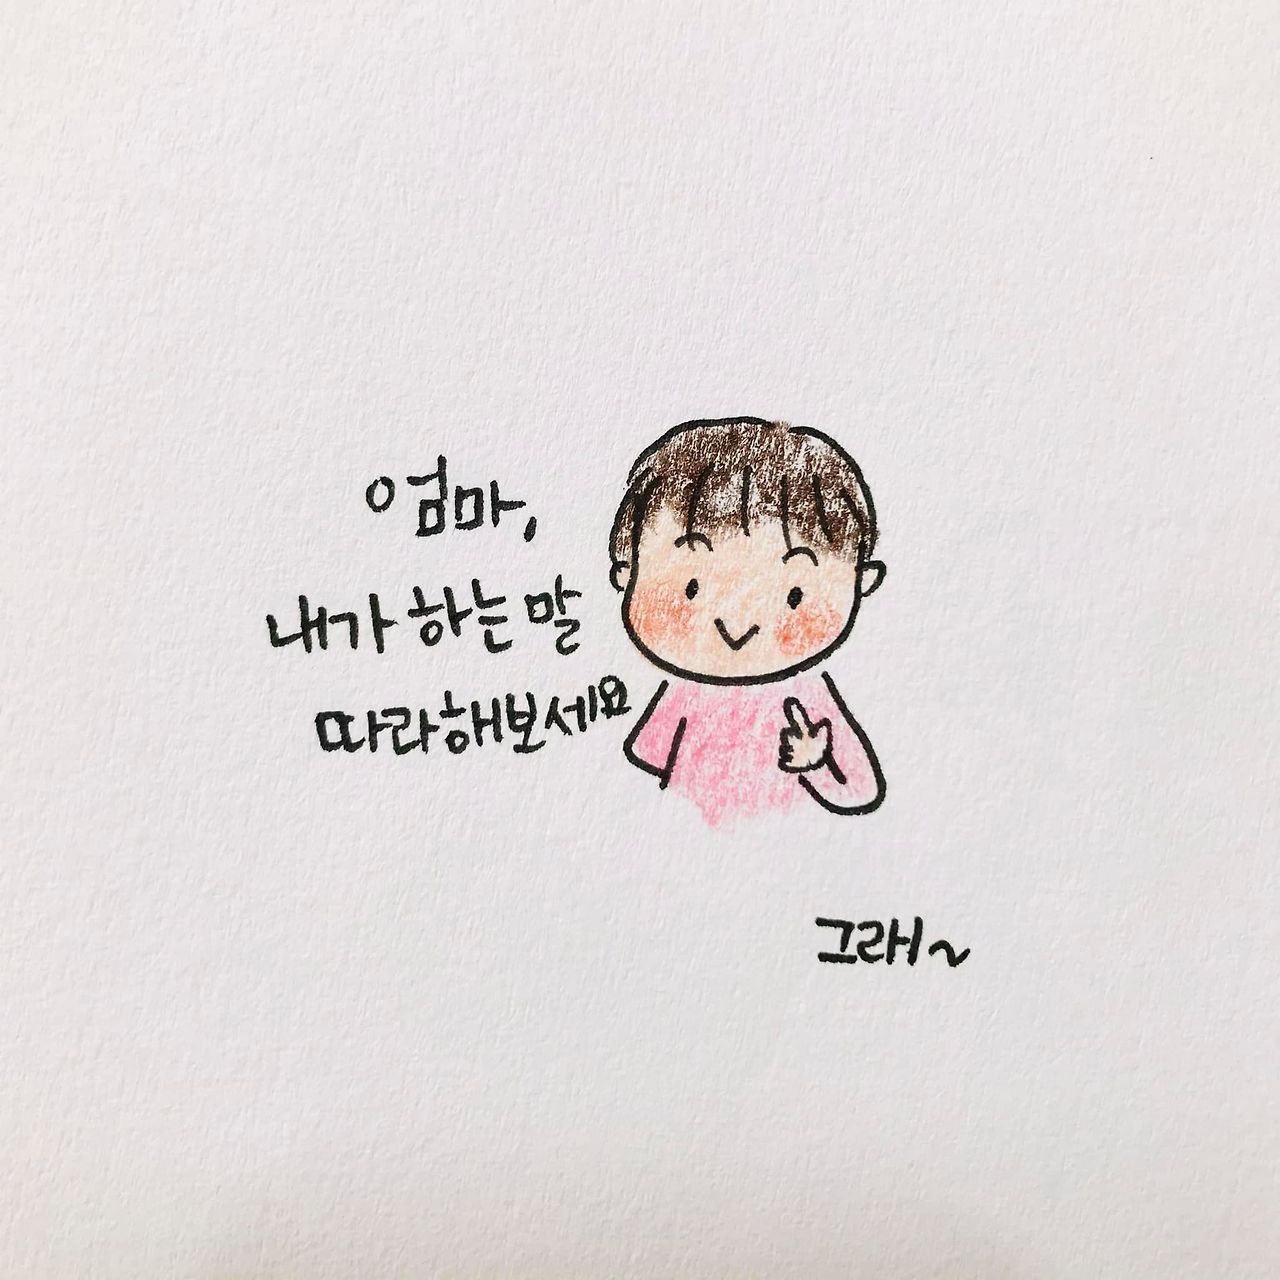 엄마,
내가 하는 말
따라해보세요
그래~